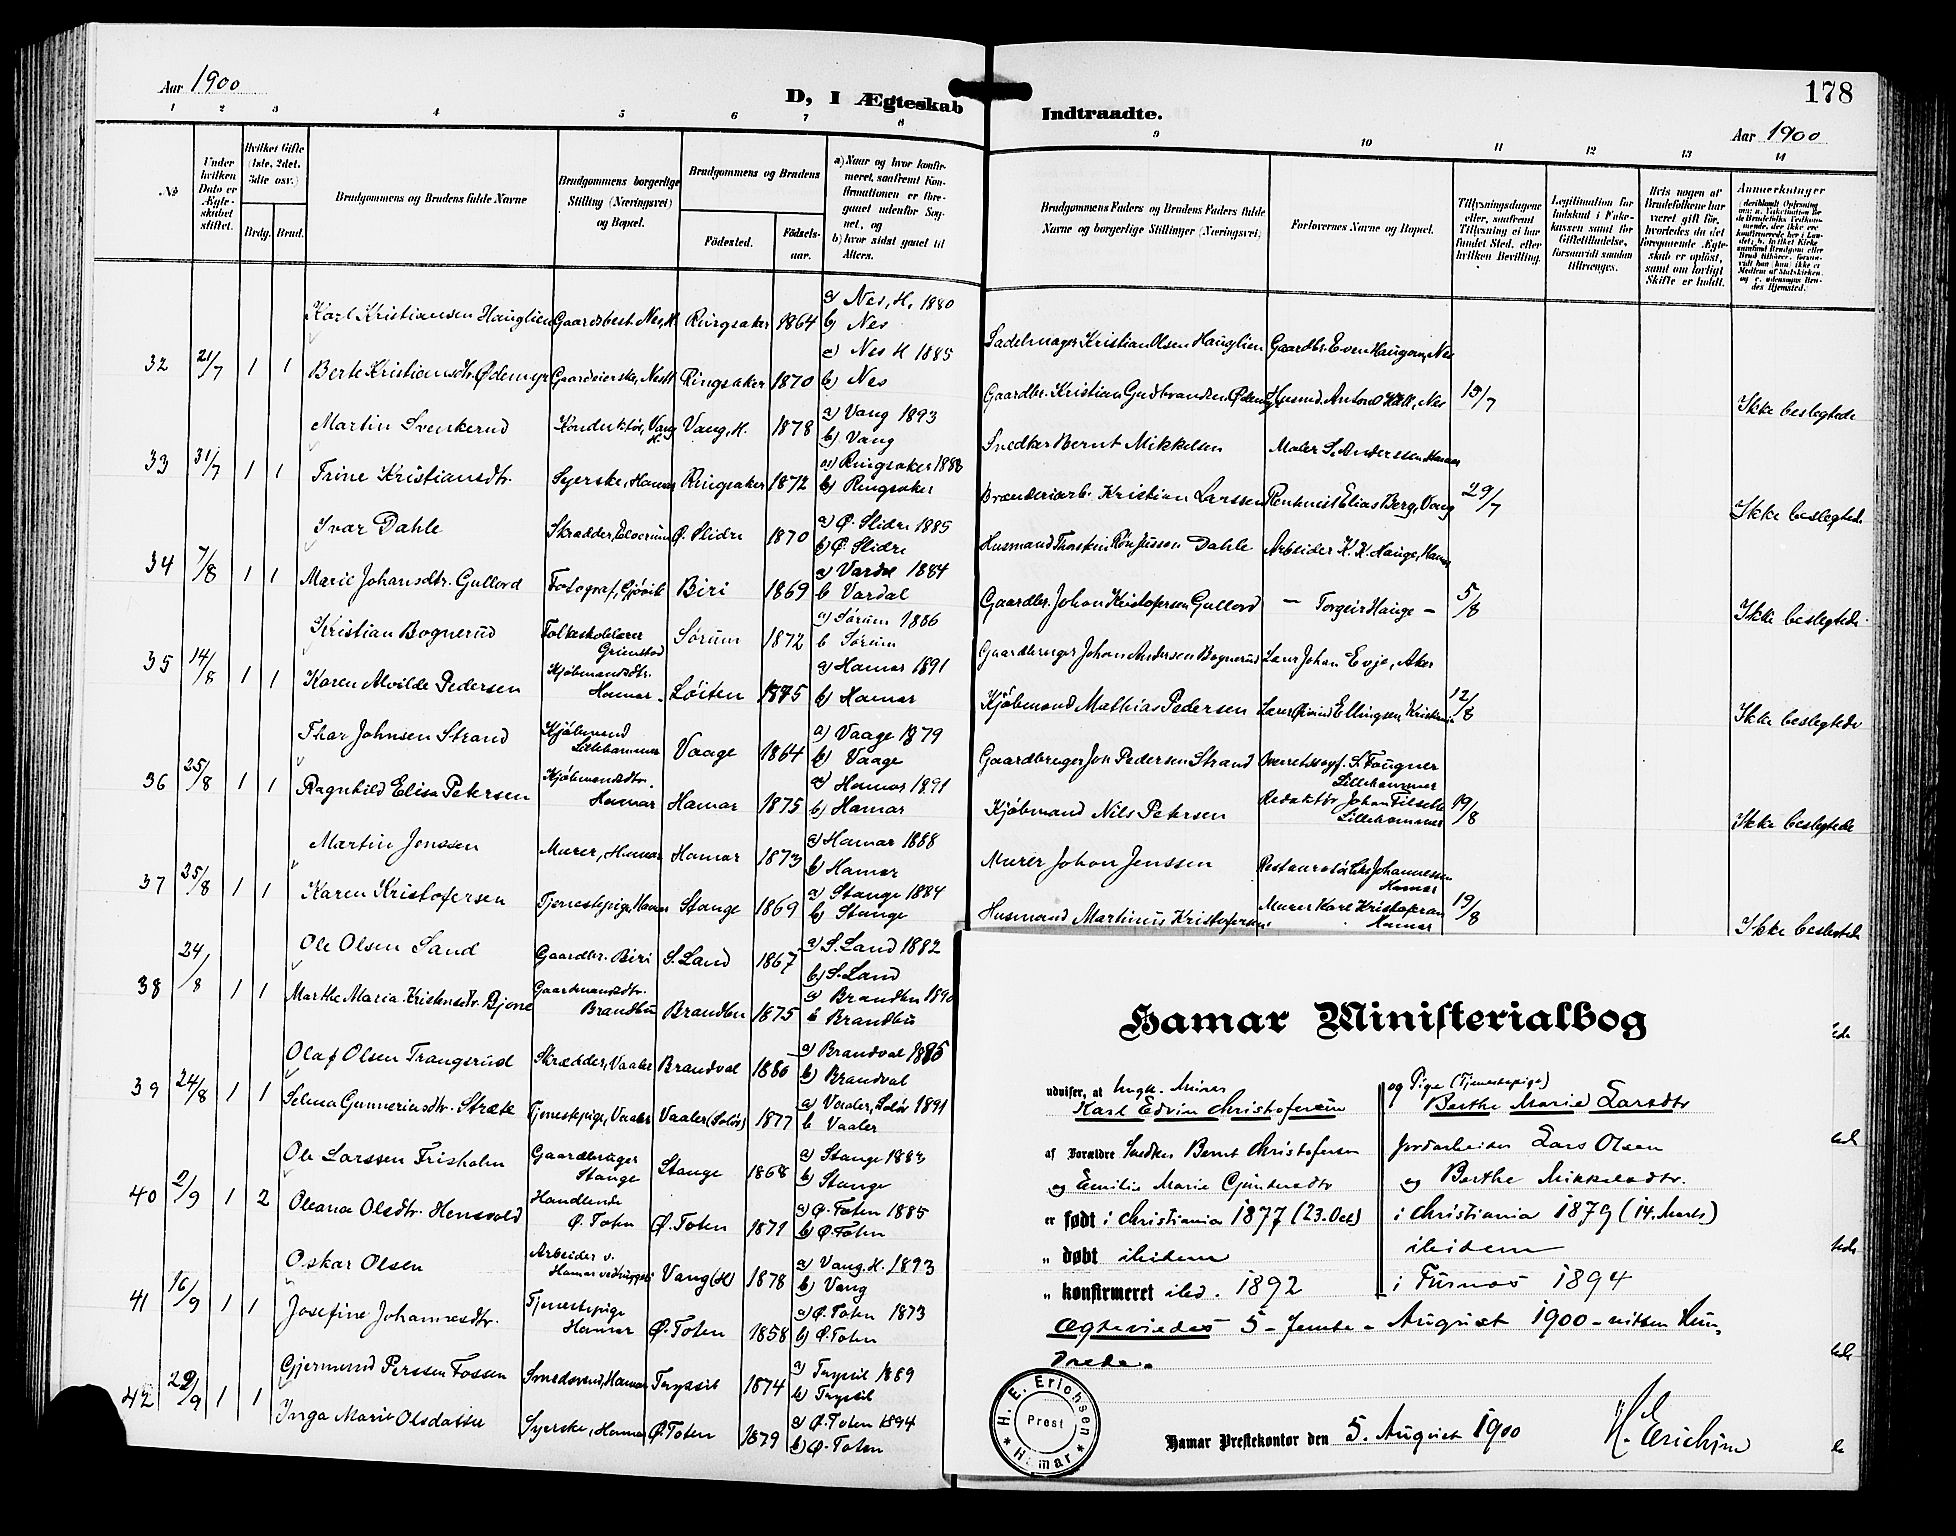 Aar 1900
D, I Ægteskab
Indtraadte.
178
Aar 1900
1 2 3 4 5 6 7 8 9 10 11 12 13 14
No
Under hvilken Dato er Ægteskabet stiftet.
Hvilket Gifte (1ste, 2det, 3die osv.)
Brdg. Brud.
Brudgommens og Brudens fulde Navne
Brudgommens borgerlige Stilling (Næringsvei) og Bopæl.
Brudgommens og Brudens
Fødested.
Fødselsaar.
a) Naar og hvor konfirmeret, saafremt Konfirmationen er foregaaet udenfor Sognet, og
b) hvor sidst gaaet til Alters.
Brudgommens Faders og Brudens Faders fulde Navne og borgerlige Stillinger (Næringsvei)
Forlovernes Navne og Bopæl.
Tillysningsdagene eller, saafremt Tillysning ei har fundet Sted, efter hvilken Bevilling.
Legitimation for Indskud i Enkekassen samt for Giftetilladelse, forsaavidt saadan tiltrænges.
Hvis nogen af Brudefolkene har været gift før, hvorledes da det foregaaende Ægteskab er opløst, samt om lovligt Skifte er holdt.
Anmærkninger
Karl Kristiansen Hauglien Gaardbest. Nes, H. Ringsaker 1864 a) Nes, H. 1880 b) Nes Sadelmager Kristian Olsen Hauglien Gaardbr. Even Haugom, Nes
32 21/7 1 1 Berte Kristiansdtr. Ødemyr Gaardeierske, Nes H Ringsaker 1870 a) Nes H 1885 b) Nes Gaardbr. Kristian Gudbrandsen Ødemyr Husmd. Anton Hell, Nes 15/7 Ikke beslegtede
Martin Svenkerud Konduktör, Vang H. Vang, H. 1878 a) Vang 1893 b) Vang Snedker Bernt Mikkelsen Maler S. Anderssen Hamar
33 31/7 1 1 Trine Kristiansdtr. Syerske, Hamar Ringsaker 1872 a) Ringsaker 1888 b) Ringsaker Brænderiarb. Kristian Larssen Rentenist Elias Berg, Vang 29/7 Ikke beslegted.
Ivar Dahle Skrædder, Elverum Ø. Slidre 1870 a) Ø. Slidre 1885 b) Ø. Slidre Husmand Thorstein Dahle Arbeider K. K. Hauge, Hamar
34 7/8 1 1 Marie Johansdtr. Gullord Fotograf, Gjøvik Biri 1869 a) Vardal 1884 b Vardal Gaardbr. Johan Kristofersen Gullord — Torgeir Hauge — 5/8 Ikke beslegtede.
Kristian Bognerud Folkeskolelærer Grimstad Sørum 1872 a) Sørum 1886 b Sørum Gaardbruger Johan Andersen Bognerud Lærer Johan Evje, Aker
35 14/8 1 1 Karen Alvilde Pedersen Kjøbmandsdtr. Hamar. Løiten 1875 a) Hamar 1891 b) Hamar Kjøbmand Mathias Pedersen Lærer Øivind Ellingsen Kristiania 12/8 Ikke beslegtede
Thar Johnsen Strand Kjøbmand Lillehammer Vaage 1864 a) Vaage 1879 b) Vaage Gaardbruger Jon Pedersen Strand Overretssagf. S. Fougner Lillehammer
36 25/8 1 1 Ragnhild Elisa Petersen Kjøbmandsdtr. Hamar Hamar 1875 a) Hamar 1891 b) Hamar Kjøbmand Nils Petersen Redaktör Johan Filseth Lillehammer 19/8 Ikke beslegtede
Martin Jenssen Murer, Hamar Hamar 1873 a) Hamar 1888 b) Hamar Murer Johan Jenssen Restauratör Johannessen Hamar
37 25/8 1 1 Karen Kristofersen Tjenestepige, Hamar Stange 1869 a) Stange 1884 b) Stange Husmand Martinius Kristofersen Murer Karl Kristofersen Hamar 19/8 Ikke beslegtede
Ole Olsen Sand Gaardbr. Biri S. Land 1867 a) S. Land 1882 b) S. Land
38 24/8 1 1 Marthe Maria Kristensdtr. Bjone Gaardmandsdtr. Brandbu Brandbu 1875 a) Brandbu 1890 b Brandbu
Olaf Olsen Trangsrud Skrædder, Vaaler Brandval 1880 a) Brandval 1895 b) Brandval
39 24/8 1 1 Selma Gunneriusdtr. Stræte Tjenestepige, Vaaler Vaaler (Solör) 1877 a) Vaaler, Solör 1891 b Vaaler
Ole Larssen Frisholm Gaardbruger Stange Stange 1868 a) Stange 1883 b) Stange
40 2/9 1 2 Oleana Olsdtr. Hensvold Handlende Ø. Toten Ø. Toten 1871 a) Ø. Toten 1885 b) Ø. Toten
Oskar Olsen Arbeider v. Hamar Vang (H) 1878 a) Vang. H. 1893 b) Vang
41 16/9 1 1 Josefine Johannesdtr. Tjenestepige Hamar Ø. Toten 1858 a) Ø. Toten 1873 b) Ø. Toten
Gjermund Perssen Fossen Smedsvend, Hamar Trysil 1874 a) Trysil 1889 b) Trysil
42 29/9 1 1 Inga Marie Olsdatter Syerske, Hamar Ø. Toten 1879 a) Ø. Toten 1894 b) Ø. Toten
Hamar Ministerialbog
udviser, at Ungk. Murer og Pige (Tjenestepige)
Karl Edvin Christofersen Berthe Marie Larsdtr
af Forældre Snedker Bernt Christofersen Jordarbeider Lars Olsen
og Emilie Marie og Berthe Mikkelsdtr.
er født i Christiania 1877 (23. Oct) i Christiania 1879 (14. Marts)
„ døbt ibidem ibidem
„ konfirmeret ibd. 1892 i Furnæs 1894
Ægteviedes 5 – femte – August 1900 – nitten Hun-
drede.
H. E. Erichsen Prest * Hamar *
Hamar Prestekontor den 5. August 1900
H. Erichsen